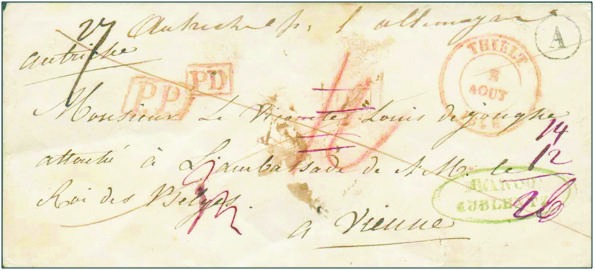 27 Autriche p. l'allemagne
Autriche
PP
PD
THIELT
8
AOUT
A
Monsieur Le Vicomte Louis de Jonghe
attaché à L'ambassade de S. M. le
Roi des Belges.
a Vienne
14
12
26
FRANCO
COBLENZ